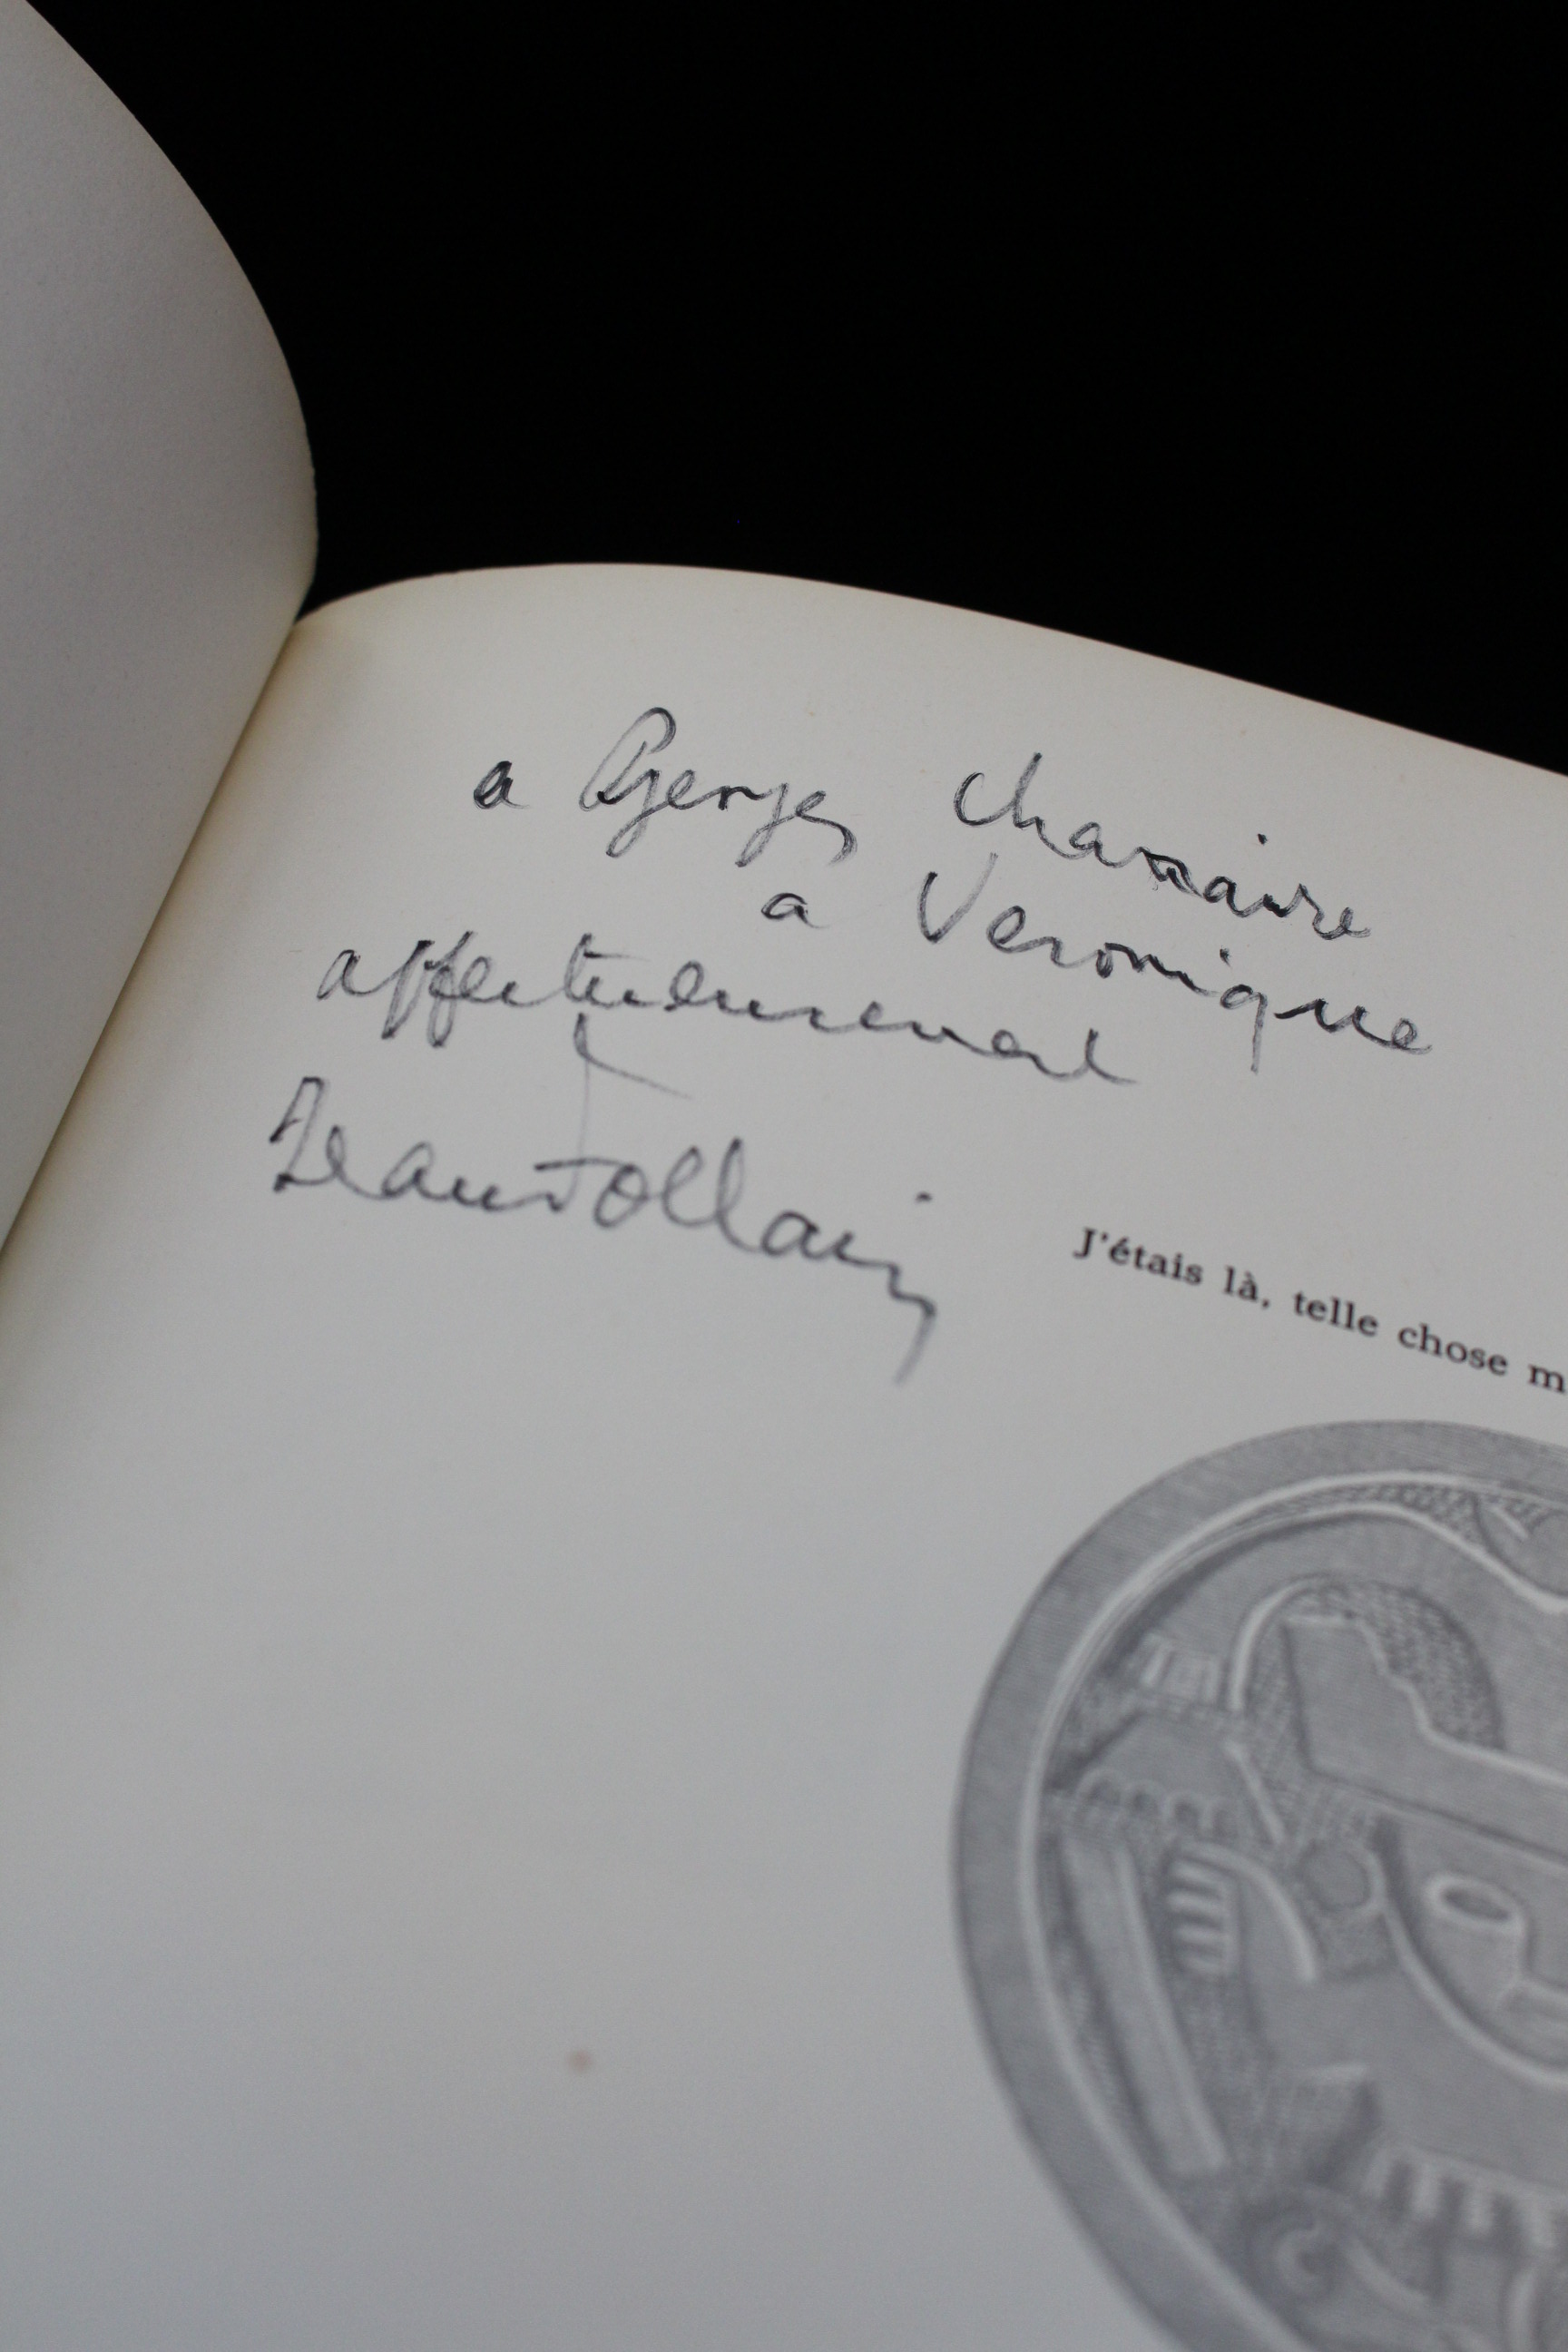 a Georges Charaire
a Veronique
affectueusement
Jean Follain
J'étais là, telle chose m